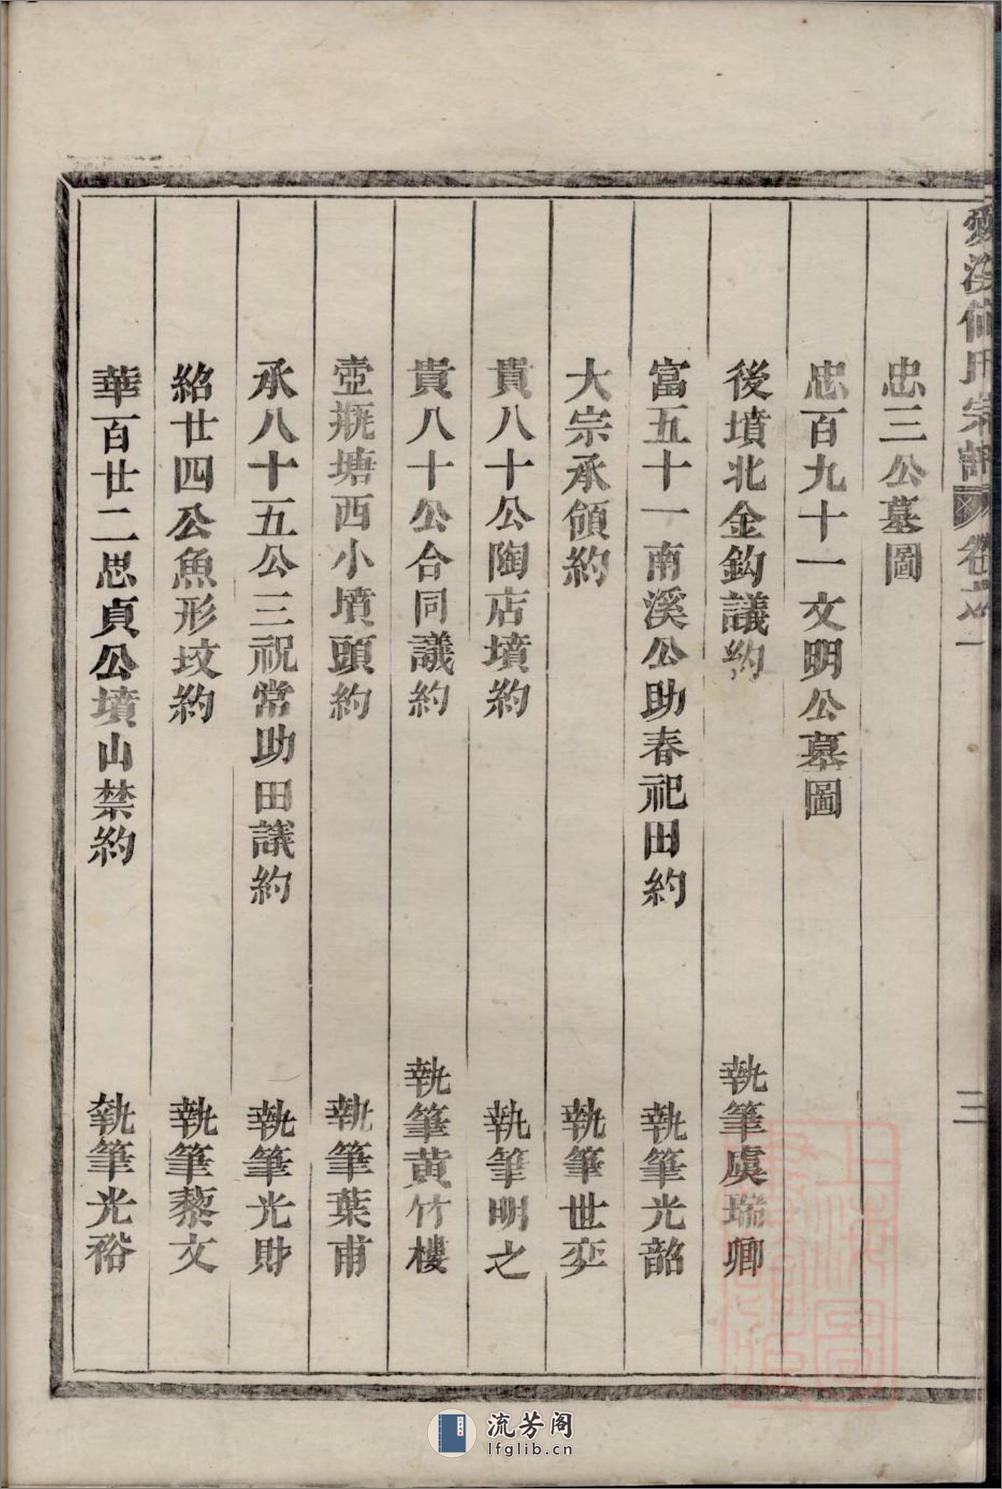 氏宗譜 卷之一 三
忠三公墓圖
忠百九十一文明公墓圖
後墳北金鈎議約 執筆虞瑞卿
富五十一南溪公助春祀田約 執筆光韶
大宗承領約 執筆世奕
貴八十公陶店墳約 執筆明之
貴八十公合同議約 執筆黃竹樓
壺瓶塘西小墳頭約 執筆葉甫
承八十五公三祝常助田議約 執筆光財
紹廿四公魚形坟約 執筆藜文
華百廿二思貞公墳山禁約 執筆光裕
流芳阁
lfglib.cn